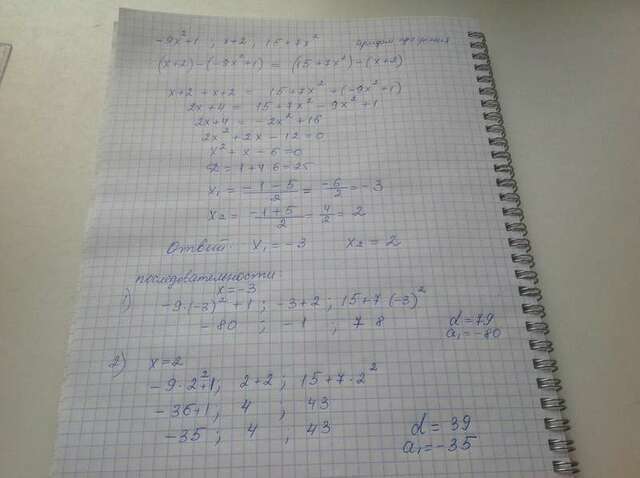 -9x²+1 ; x+2 ; 15+7x²
(x+2)-(-9x²+1) = (15+7x²)-(x+2)
x+2+x+2 = 15+7x²+(-9x²+1)
2x+4 = 15+7x²-9x²+1
2x+4 = -2x²+16
2x²+2x-12=0
x²+x-6=0
D=1+4·6=25
x₁ = (-1-5)/2 = -6/2 = -3
x₂ = (-1+5)/2 = 4/2 = 2
Ответ: x₁=-3 x₂=2
последовательности:
1) x=-3
-9·(-3)²+1 ; -3+2 ; 15+7·(-3)²
-80 ; -1 , 78 d=79
a₁=-80
2) x=2
-9·2²+1; 2+2 ; 15+7·2²
-36+1; 4 ; 43
-35 ; 4 , 43 d=39
a₁=-35